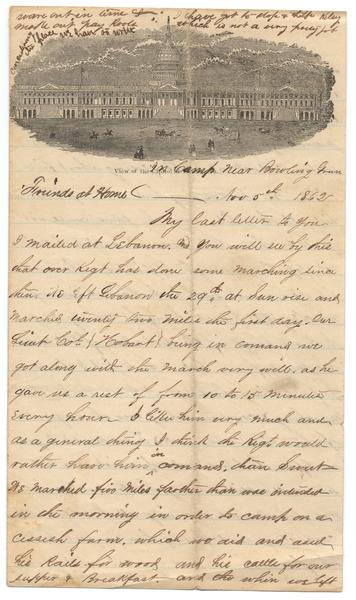 I have got to stop & help Riley
which is not a very pretty job
ware out in time to
made out pay Roole
we have to write
View of the
In Camp Near Bowling Green
Friends at Home Nov 5th 1862
My last letter to you
I mailed at Lebanon. And you will see by this
that our Regt has done some marching since
then. We left Lebanon the 29th at Sun rise and
marched twenty two miles the first day. Our
Lieut Col (Hobart) being in comand we
got along with the march very well, as he
gave us a rest of from 10 to 15 minutes
every hour I like him very much and
as a general thing I think the Regt would
rather have him in comand, than Sweet
We marched five miles farther than we intended
in the morning in order to camp on a
cessish farm, which we did and used
his Rails for wood and his cattle for our
supper & Breakfast. and the when we left